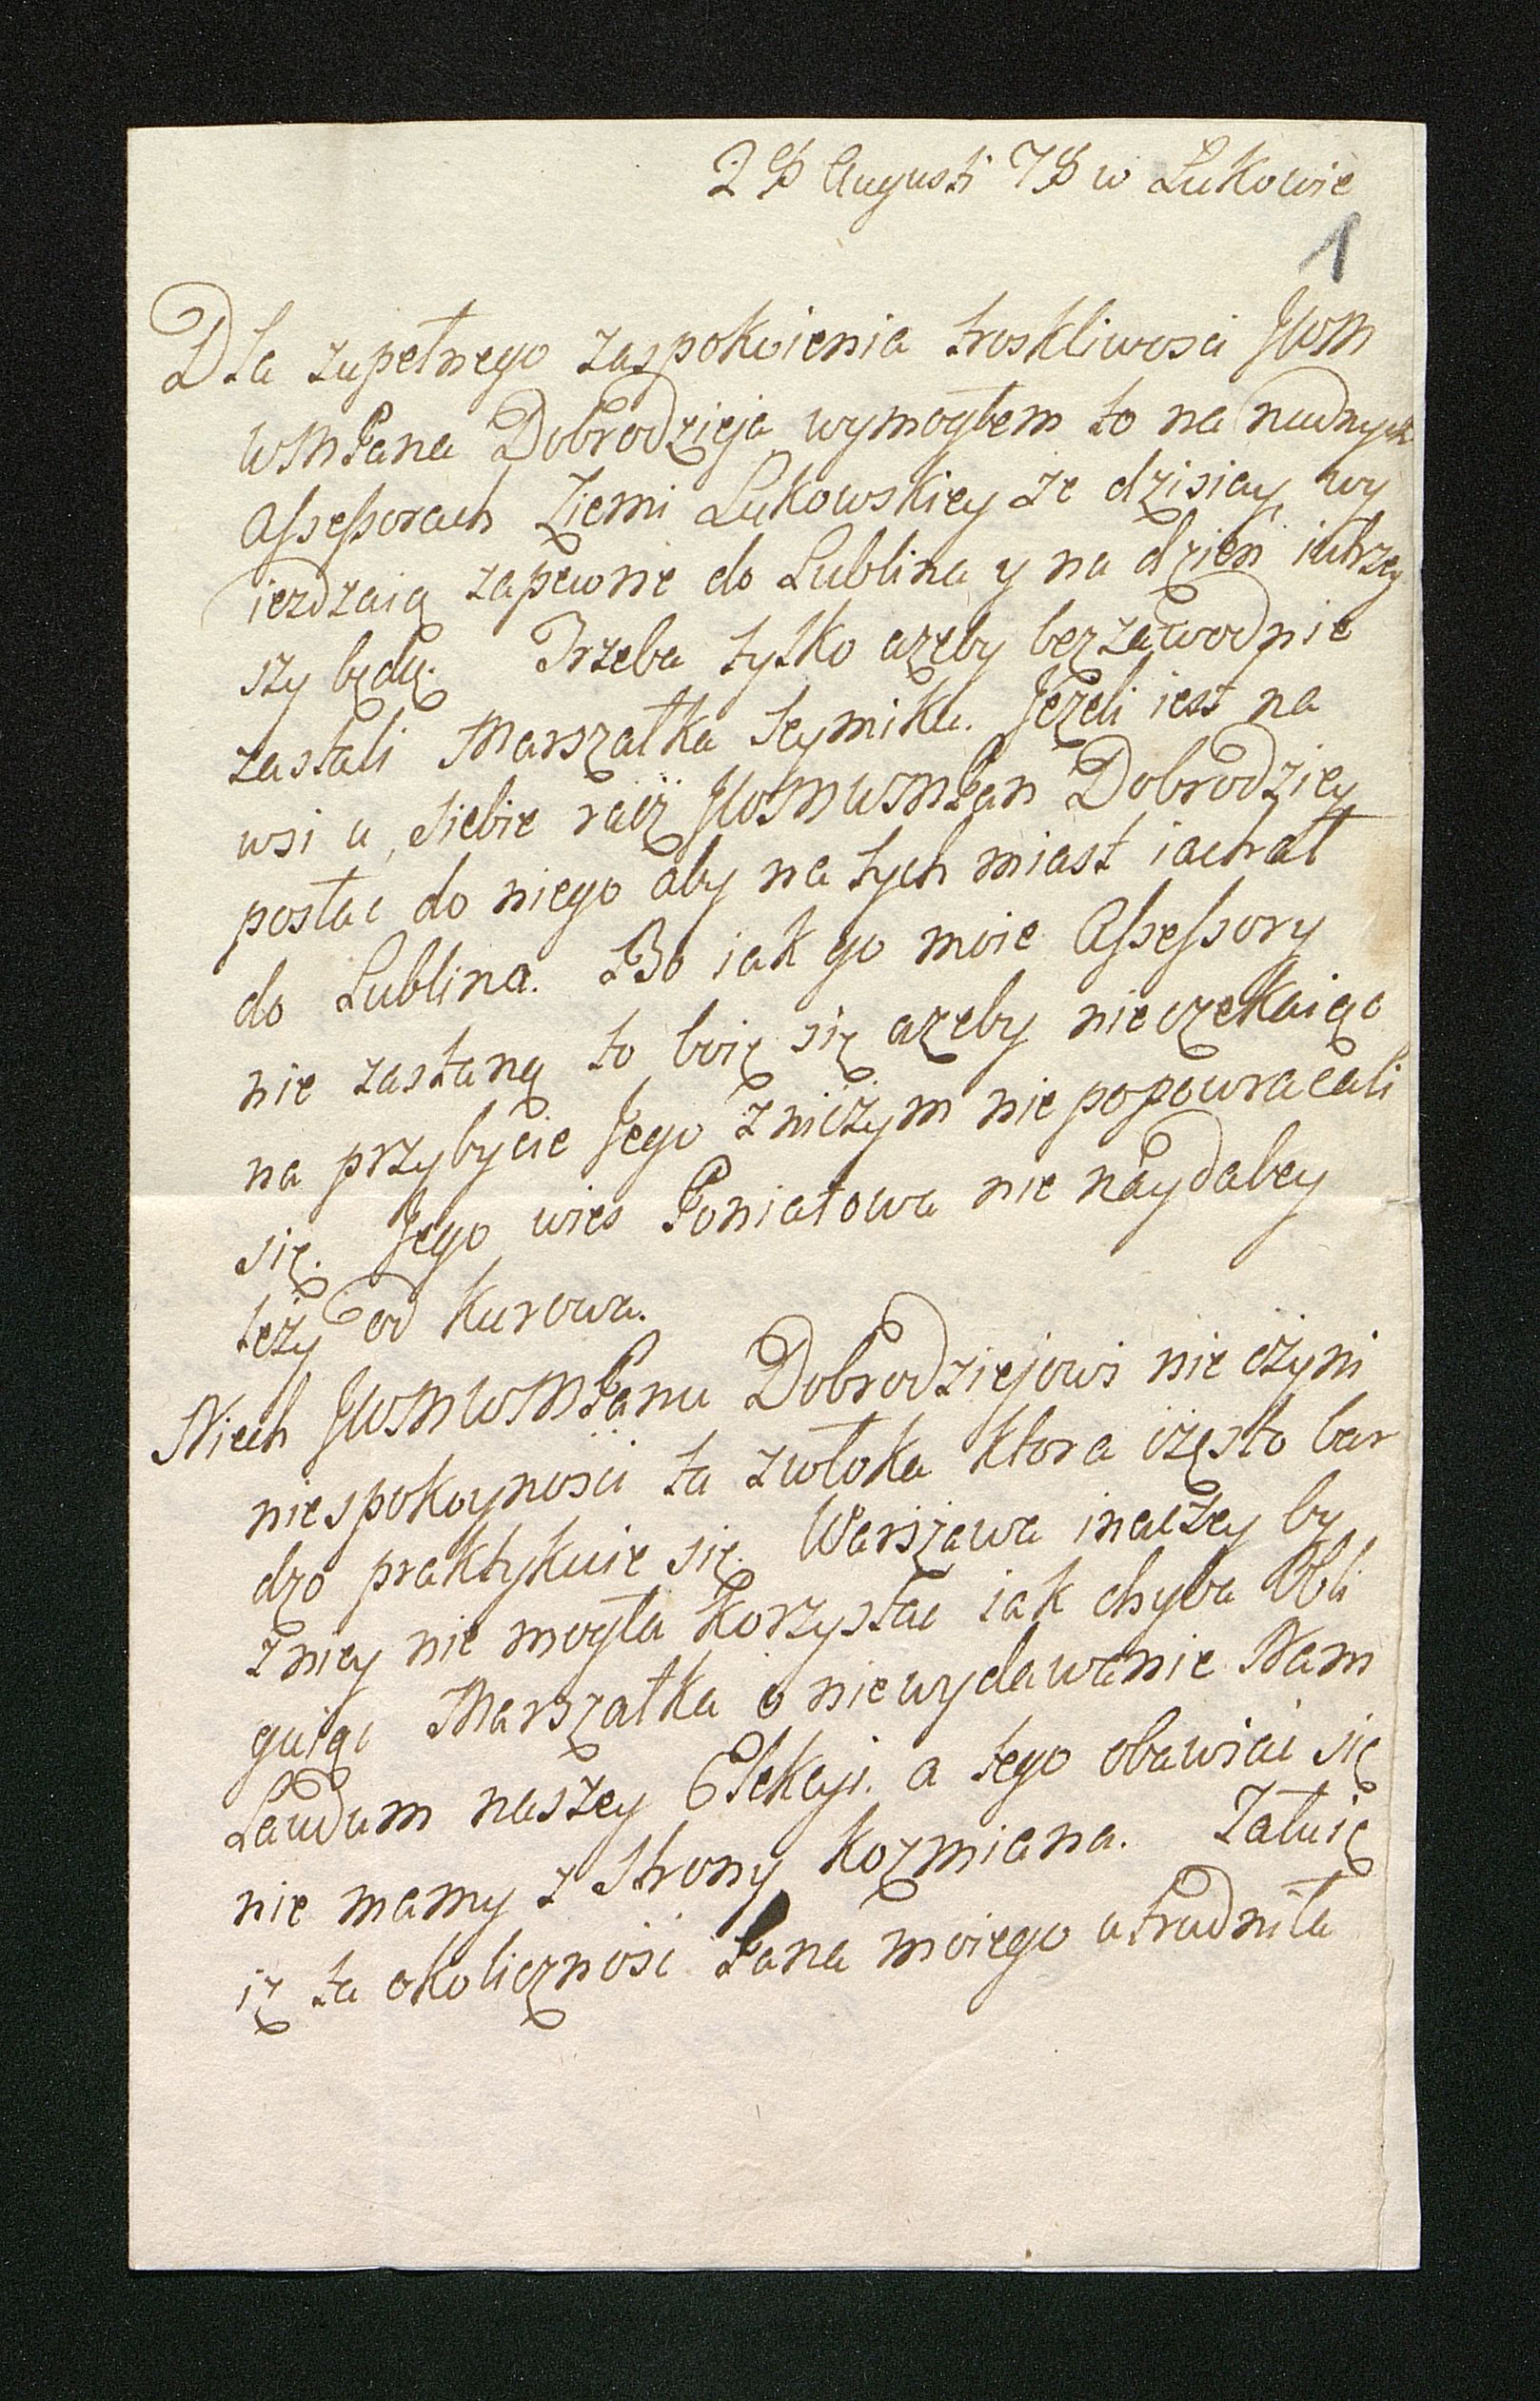 28 Augusti 78 w Łukowie
1
Dla zupełnego zaspokoienia troskliwosci JWM
WMPana Dobrodzieja wymogłem to na nudnych
Assessorach Ziemi Łukowskiey że dzisiay wy
ieżdzaią zapewne do Lublina y na dzień iutrzey
szy będą. Trzeba tylko ażeby bezzawodnie
zastali Marszałka Seymiku. Jeżeli iest na
wsi u siebie racz JWMWMPan Dobrodziey
posłac do niego aby na tych miast iachał
do Lublina. Bo iak go moie Assessory
nie zastaną to boię się ażeby nieczekaiąc
na przybycie Jego z niczym nie popowracali
się. Jego wies Poniatowa nie naydaley
leży od Kurowa.
Niech JWMWMPanu Dobrodziejowi nie czyni
niespokoynosci ta zwłoka ktora często bar
dzo praktykuie się. Warszawa inaczey by
z niey nie mogła korzystac iak chyba Obli
guiąc Marszałka o niewydawanie Nam
Laudum naszey Elekcyi. a tego obawiac się
nie mamy z strony Kozmiana. Załuię
iż ta okolicznosc Pana moiego utrudniła